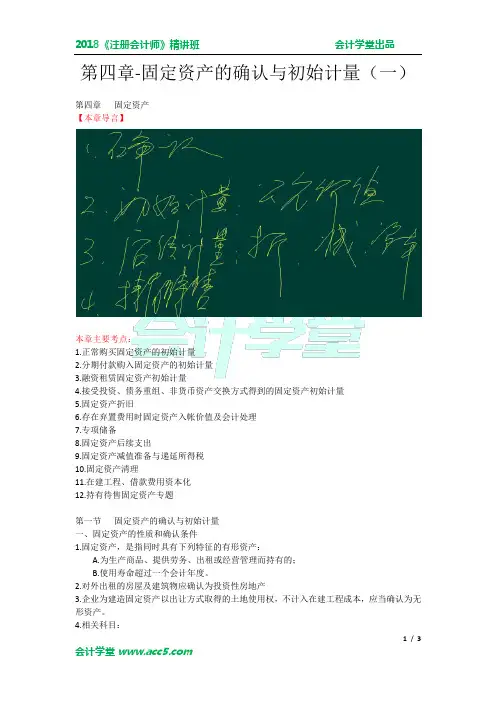 2018《注册会计师》精讲班 会计学堂出品
第四章-固定资产的确认与初始计量（一）
第四章 固定资产
【本章导言】
1.确认
2.初始计量：公允价值
3.后续计量：折、减、
4.持有待售
会计学堂
本章主要考点：
1.正常购买固定资产的初始计量
2.分期付款购入固定资产的初始计量
3.融资租赁固定资产初始计量
4.接受投资、债务重组、非货币资产交换方式得到的固定资产初始计量
5.固定资产折旧
6.存在弃置费用时固定资产入帐价值及会计处理
7.专项储备
8.固定资产后续支出
9.固定资产减值准备与递延所得税
10.固定资产清理
11.在建工程、借款费用资本化
12.持有待售固定资产专题
第一节 固定资产的确认与初始计量
一、固定资产的性质和确认条件
1.固定资产，是指同时具有下列特征的有形资产：
A.为生产商品、提供劳务、出租或经营管理而持有的；
B.使用寿命超过一个会计年度。
2.对外出租的房屋及建筑物应确认为投资性房地产
3.企业为建造固定资产以出让方式取得的土地使用权，不计入在建工程成本，应当确认为无
形资产。
4.相关科目：
1 / 3
会计学堂 www.acc5.com